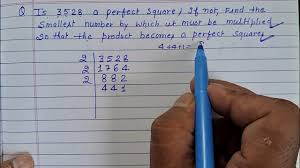 Q Is 3528 a perfect square? If not, find the
smallest number by which it must be multiplied
so that the product becomes a perfect square.
4+4+1=
2 3528
2 1764
2 882
441